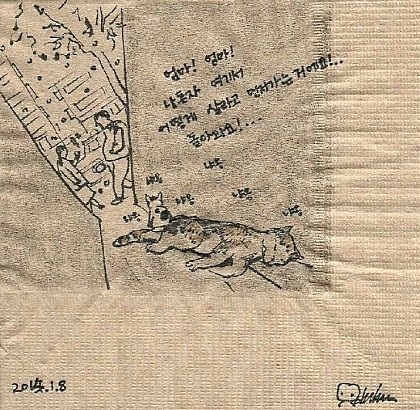 엄마! 엄마!
나혼자 여기서
어떻게 살라고 먼저가는거에요!..
돌아와요!...
냐옹
냐옹
냐옹
냐옹
냐옹
냐옹
2014.1.8